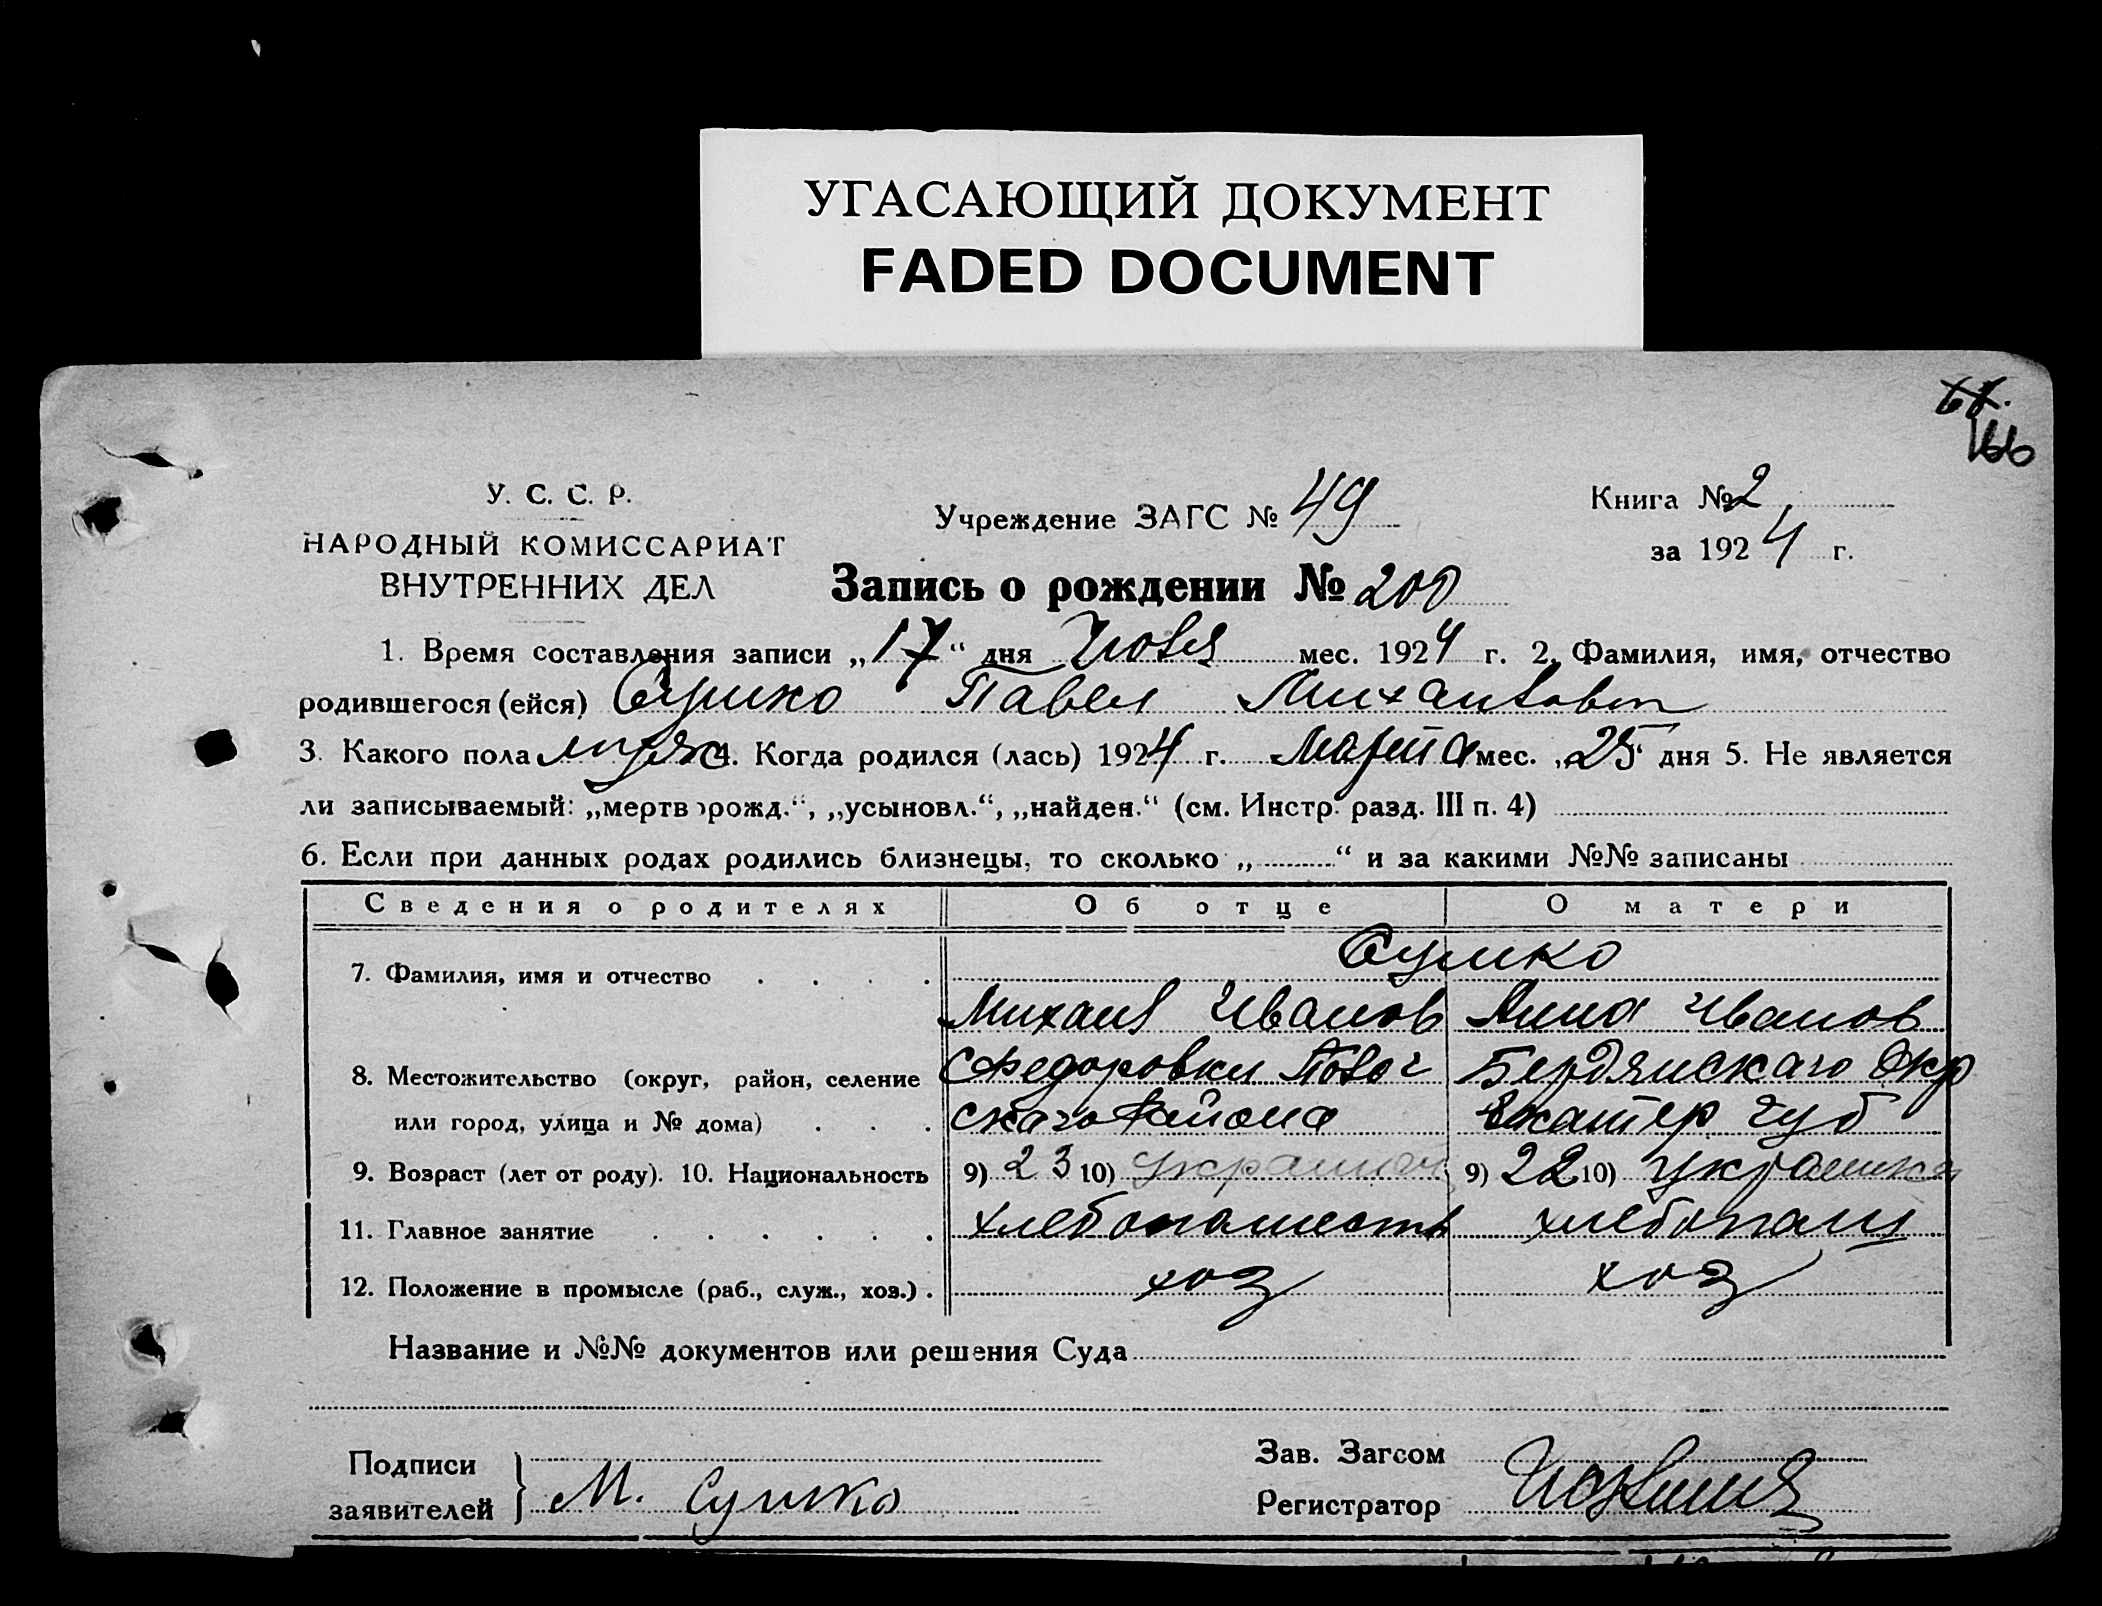 УГАСАЮЩИЙ ДОКУМЕНТ
FADED DOCUMENT
166
У. С. С. Р.
НАРОДНЫЙ КОМИССАРИАТ
ВНУТРЕННИХ ДЕЛ
Учреждение ЗАГС № 49
Книга № 2
за 1924 г.
Запись о рождении № 200
1. Время составления записи „17“ дня Июля мес. 1924 г. 2. Фамилия, имя, отчество
родившегося (ейся) Сушко Павел Михайлович
3. Какого пола муж 4. Когда родился (лась) 1924 г. Марта мес. „25“ дня 5. Не является
ли записываемый: „мертворожд.“, „усыновл.“, „найден.“ (см. Инстр. разд. III п. 4)
6. Если при данных родах родились близнецы, то сколько „ “ и за какими №№ записаны
Сведения о родителях Об отце О матери
7. Фамилия, имя и отчество Сушко
Михаил Иванов Анна Иванов
8. Местожительство (округ, район, селение Федоровки Бердянскаго Окр
или город, улица и № дома) скаго Района Екатер Губ
9. Возраст (лет от роду). 10. Национальность 9) 23 10) украинец 9) 22 10) украинка
11. Главное занятие хлебопашеств хлебопаш
12. Положение в промысле (раб., служ., хоз.) хоз хоз
Название и №№ документов или решения Суда
Подписи
заявителей М. Сушко
Зав. Загсом
Регистратор